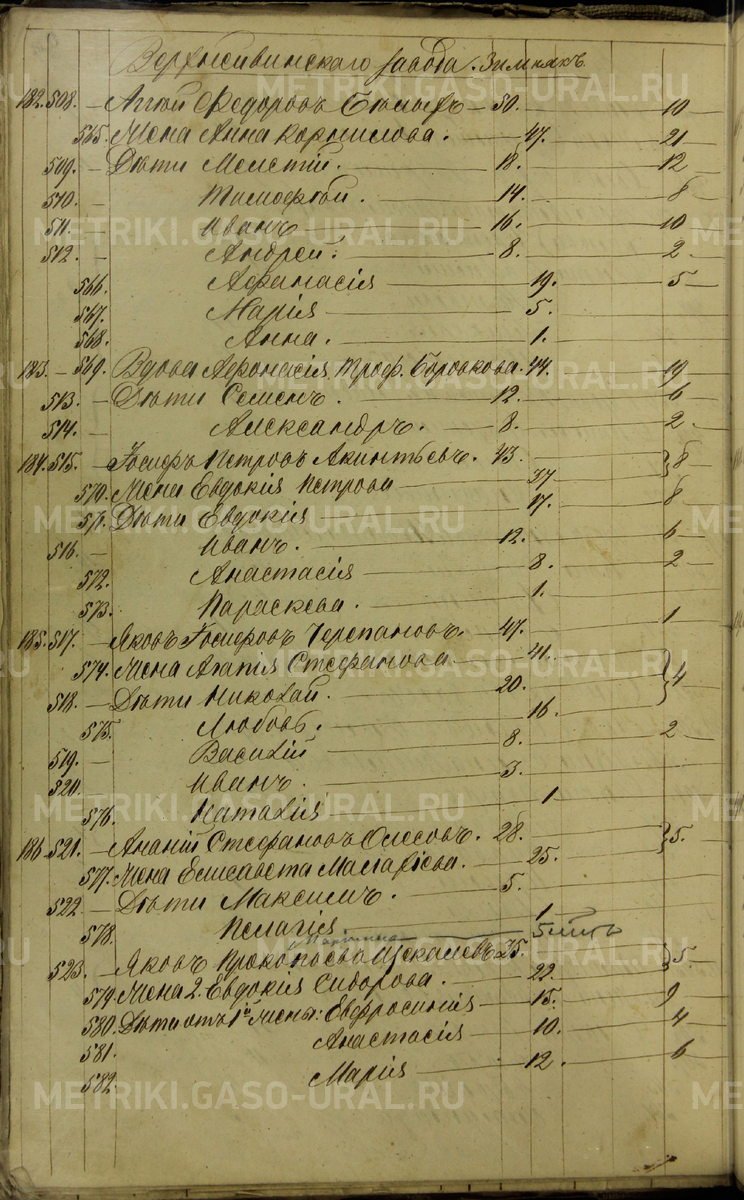 Верхнсивинскаго завода. Зимнякъ.
182. 508. — Агѣй Ѳедоровъ — 50. — 10
565. Жена Анна Кормилова. — 47. — 21
509. — Дѣти Мелетій. — 18. — 12
510. — Тимофѣй. — 14. — 8
511. — Иванъ — 16. — 10
512. — Андрей. — 8. — 2
566. Афанасія — 19. — 5
567. Марія — 5.
568. Анна. — 1.
183. — 569. Вдова Афонасія Троф. Боровкова. 44. — 19
513. — Дѣти Семенъ. — 12. — 6
514. — Александръ. — 8. — 2
184. 515. — Іосифъ Петровъ Акинтьевъ. 43. — } 8
570. Жена Евдокія Петрова — 37
571. Дѣти Евдокія — 17. — 8
516. — Иванъ. — 12. — 6
572. Анастасія — 8. — 2
573. Параскева. — 1.
185. 517. — Яковъ Іосифовъ Черепановъ. — 47. — 1
574. Жена Агапія Стефанова — 41. — } 4
518. — Дѣти Николай. — 20.
575. Любовь. — 16. — 2
519. — Василій — 8.
520. — Иванъ. — 3.
576. Наталія — 1
186. 521. — Ананій Стефановъ — 28. — } 5.
577. Жена Елисавета Макаріева. — 25.
522. — Дѣти Максимъ. — 5.
578. Пелагія — 1
Мартинна — 5 лѣтъ
523. — Яковъ Прокопьевъ 35. — } 5.
579. Жена 2. Евдокія Сидорова. — 22.
580. Дѣти отъ 1й жены: Евфросинія — 15. — 9
581. Анастасія — 10. — 4
582. Марія — 12. — 6
METRIKI.GASO-URAL.RU